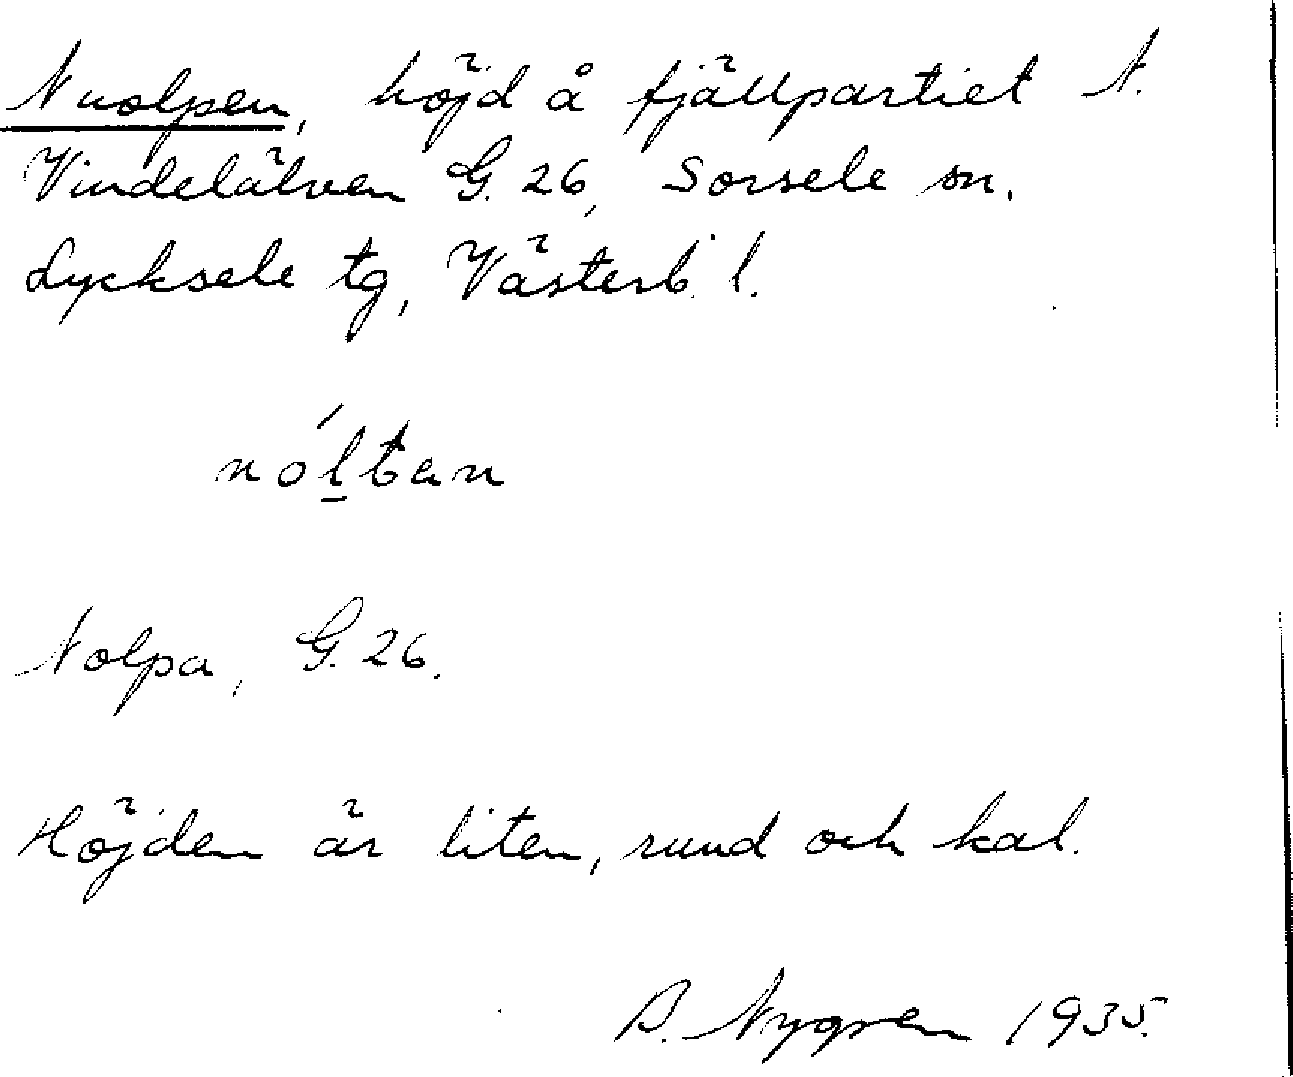 Nuolpen, höjd å fjällpartiet N.
Vindelälven G. 26, Sorsele sn.
Lycksele tg, Västerb. l.
nól̠tan
Nolpa, G. 26.
Höjden är liten, rund och kal.
B. Nygren 1935.